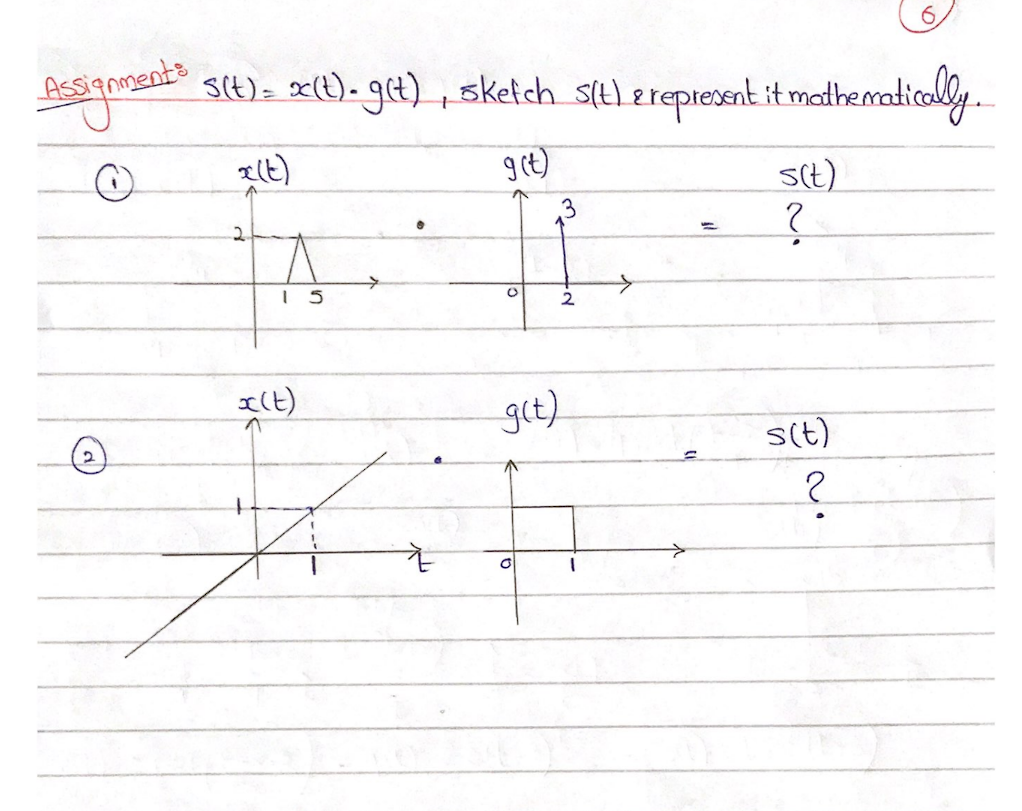 6
Assignment: s(t) = x(t) · g(t) , sketch s(t) & represent it mathematically.
① x(t) g(t) s(t)
2 · 3 = ?
1 5 0 2
x(t) g(t) s(t)
② · = ?
1
1 t 0 1